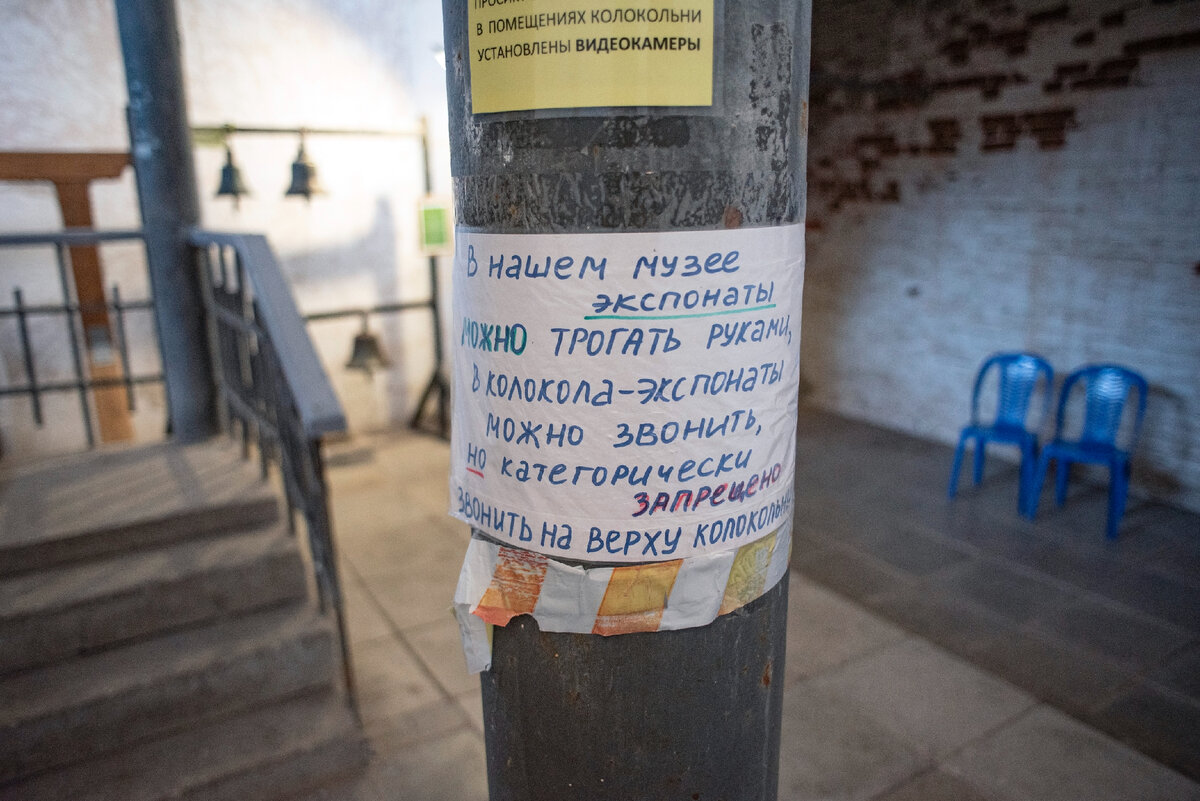 В ПОМЕЩЕНИЯХ КОЛОКОЛЬНИ
УСТАНОВЛЕНЫ ВИДЕОКАМЕРЫ
В нашем музее
экспонаты
можно ТРОГАТЬ РУКАМИ,
В колокола-экспонаты
можно звонить,
но категорически
ЗАПРЕЩЕНО
звонить на верху колокольни